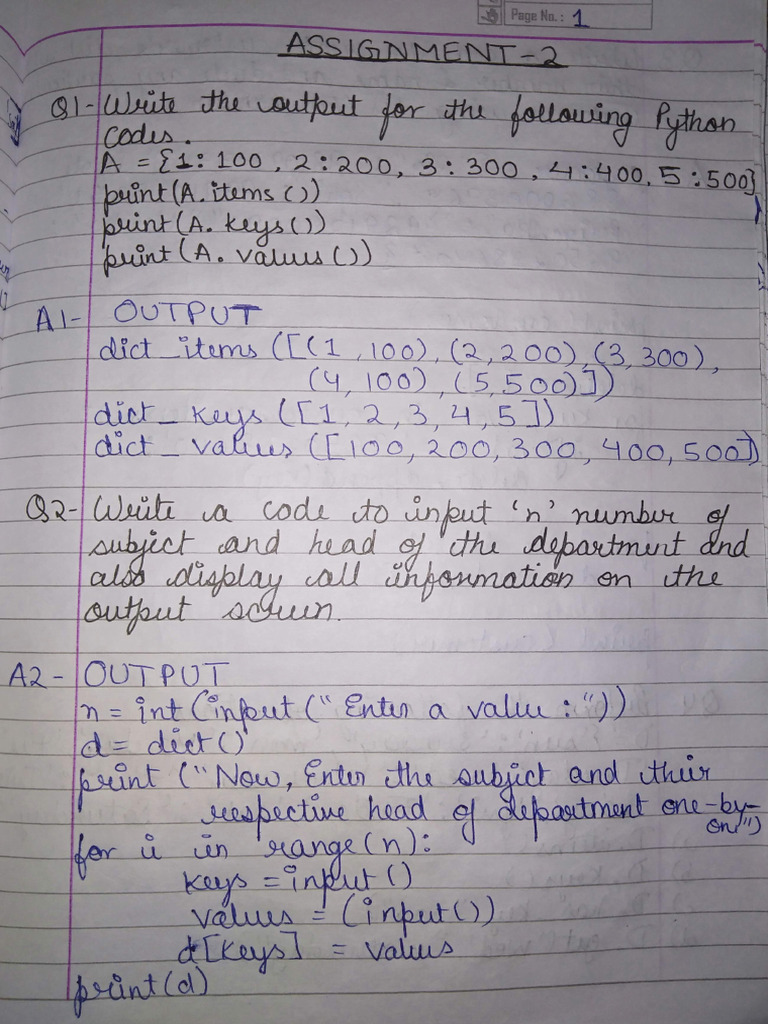 Page No.: 1
ASSIGNMENT-2
Q1- Write the output for the following Python
codes.
A = {1: 100, 2:200, 3:300, 4:400, 5:500}
print(A.items())
print(A. keys())
print(A. values())
A1- OUTPUT
dict_items ([(1,100), (2,200), (3,300),
(4,100), (5,500)])
dict_keys ([1, 2, 3, 4, 5])
dict_values ([100, 200, 300, 400, 500])
Q2- Write a code to input 'n' number of
subject and head of the department and
also display all information on the
output screen.
A2- OUTPUT
n = int (input (" Enter a value : "))
d = dict()
print ("Now, Enter the subject and their
respective head of department one-by-
one")
for i in range(n):
keys = input()
values = (input())
d[keys] = values
print(d)